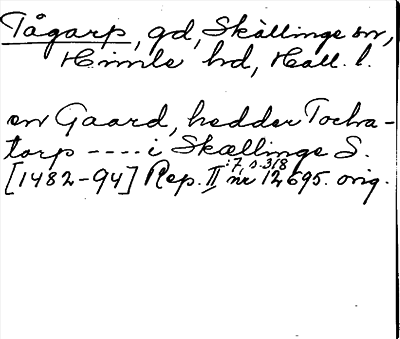 Tågarp, gd, Skällinge sn,
Himle hd, Hall. l.
en Gaard, hedder Tocka-
torp ---- i Skællinge S.
[1482-94] Rep. II :7, s.318 nr 12695. orig.